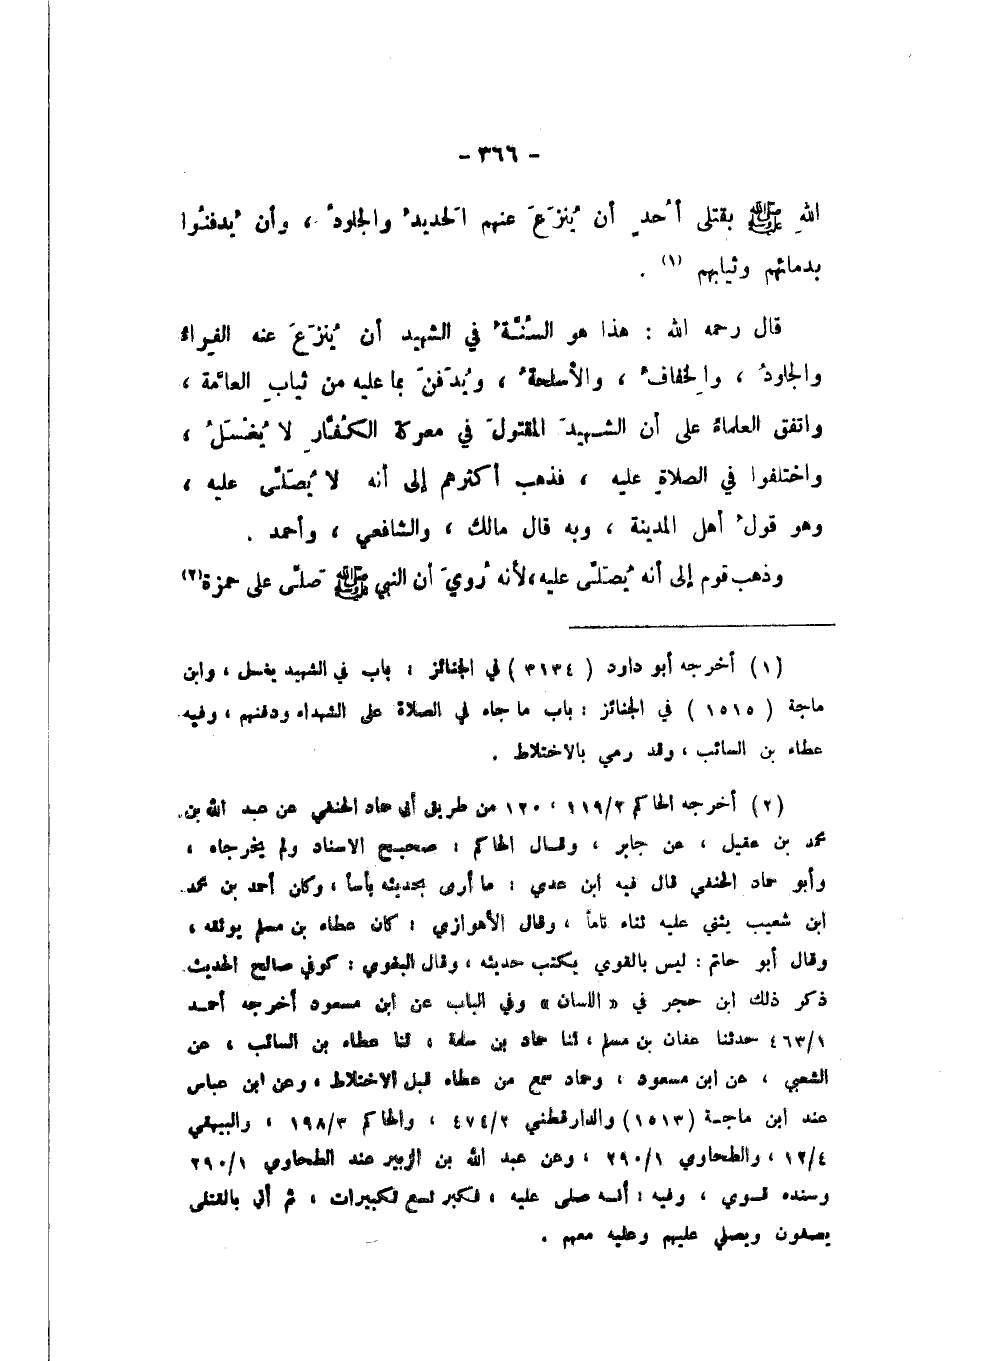 - ٣٦٦ -
اللهِ ﷺ بقتلى أُحدٍ أن يُنزَعَ عنهم الحديدُ والجلودُ ، وأن يُدفنُوا
بدمائهم وثيابهم (١) .
قال رحمه الله : هذا هو السُّنَّةُ في الشهيد أن يُنزَعَ عنه الفِراءُ
والجلودُ ، والخِفافُ ، والأسلحةُ ، ويُدفَنَ بما عليه من ثيابِ العامَّة ،
واتفق العلماءُ على أن الشهيدَ المقتولَ في معركة الكُفَّارِ لا يُغسَّلُ ،
واختلفوا في الصلاةِ عليه ، فذهب أكثرهم إلى أنه لا يُصَلَّى عليه ،
وهو قولُ أهل المدينة ، وبه قال مالك ، والشافعي ، وأحمد .
وذهب قوم إلى أنه يُصَلَّى عليه،لأنه رُويَ أن النبي ﷺ صَلَّى على حمزة(٢)
(١) أخرجه أبو داود ( ٣١٣٤ ) في الجنائز : باب في الشهيد يغسل ، وابن
ماجة ( ١٥١٥ ) في الجنائز : باب ما جاء في الصلاة على الشهداء ودفنهم ، وفيه
عطاء بن السائب ، وقد رمي بالاختلاط .
(٢) أخرجه الحاكم ١١٩/٢ ، ١٢٠ من طريق أبي حماد الحنفي عن عبد الله بن
محمد بن عقيل ، عن جابر ، وقال الحاكم : صحيح الاسناد ولم يخرجاه ،
وأبو حماد الحنفي قال فيه ابن عدي : ما أرى بحديثه بأساً ، وكان أحمد بن محمد
ابن شعيب يثني عليه ثناء تاماً ، وقال الأهوازي : كان عطاء بن مسلم يوثقه ،
وقال أبو حاتم : ليس بالقوي يكتب حديثه ، وقال البغوي : كوفي صالح الحديث
ذكر ذلك ابن حجر في « اللسان » وفي الباب عن ابن مسعود أخرجه أحمد
٤٦٣/١ حدثنا عفان بن مسلم ، ثنا حماد بن سلمة ، ثنا عطاء بن السائب ، عن
الشعبي ، عن ابن مسعود ، وحماد سمع من عطاء قبل الاختلاط ، وعن ابن عباس
عند ابن ماجة (١٥١٣) والدارقطني ٤٧٤/٢ ، والحاكم ١٩٨/٣ ، والبيهقي
١٢/٤ ، والطحاوي ٢٩٠/١ ، وعن عبد الله بن الزبير عند الطحاوي ٢٩٠/١
وسنده قوي ، وفيه : أنه صلى عليه ، فكبر تسع تكبيرات ، ثم أتي بالقتلى
يصفون ويصلي عليهم وعليه معهم .